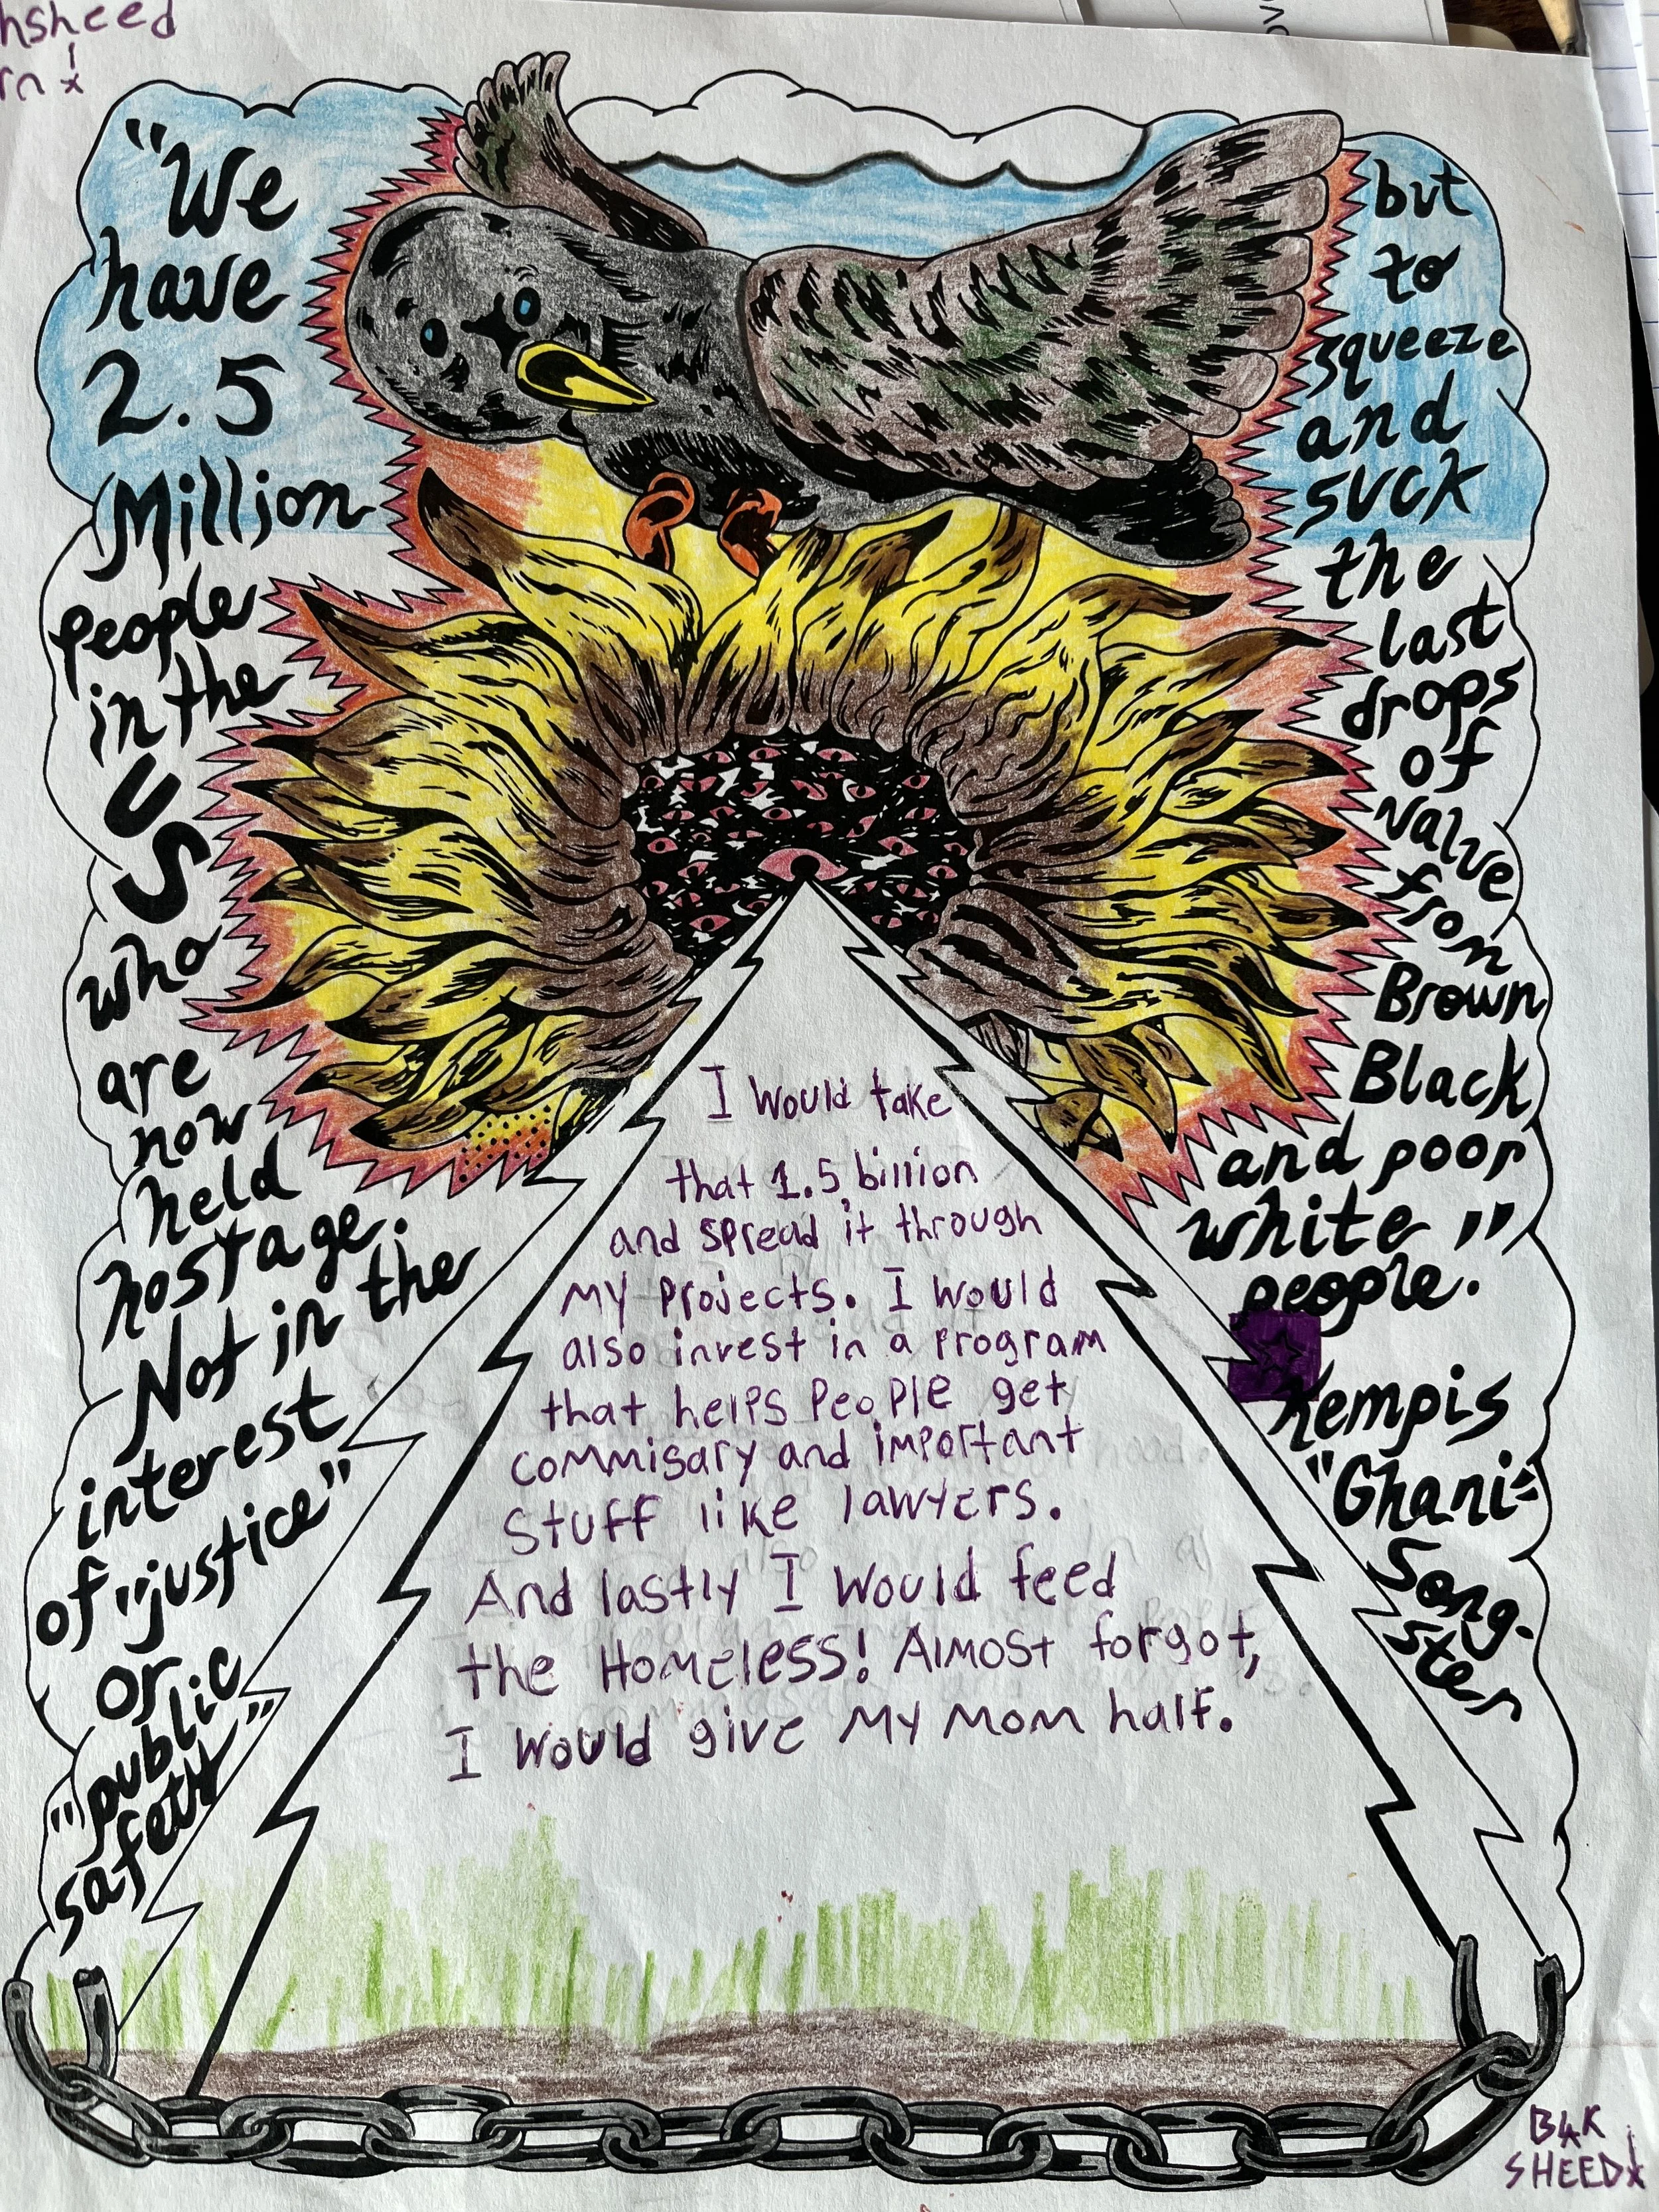 hsheed
rn
"We
have
2.5
Million
people
in the
US
who
are
now
held
hostage.
Not in the
interest
of "justice"
or
"public
safety"
but
to
squeeze
and
suck
the
last
drops
of
value
from
Brown
Black
and poor
white
people."
Kempis
"Ghani"
Song-
ster
I would take
that 1.5 billion
and spread it through
my projects. I would
also invest in a program
that helps people get
commisary and important
stuff like lawyers.
And lastly I would feed
the Homeless! Almost forgot,
I would give my mom half.
B4K
SHEED!